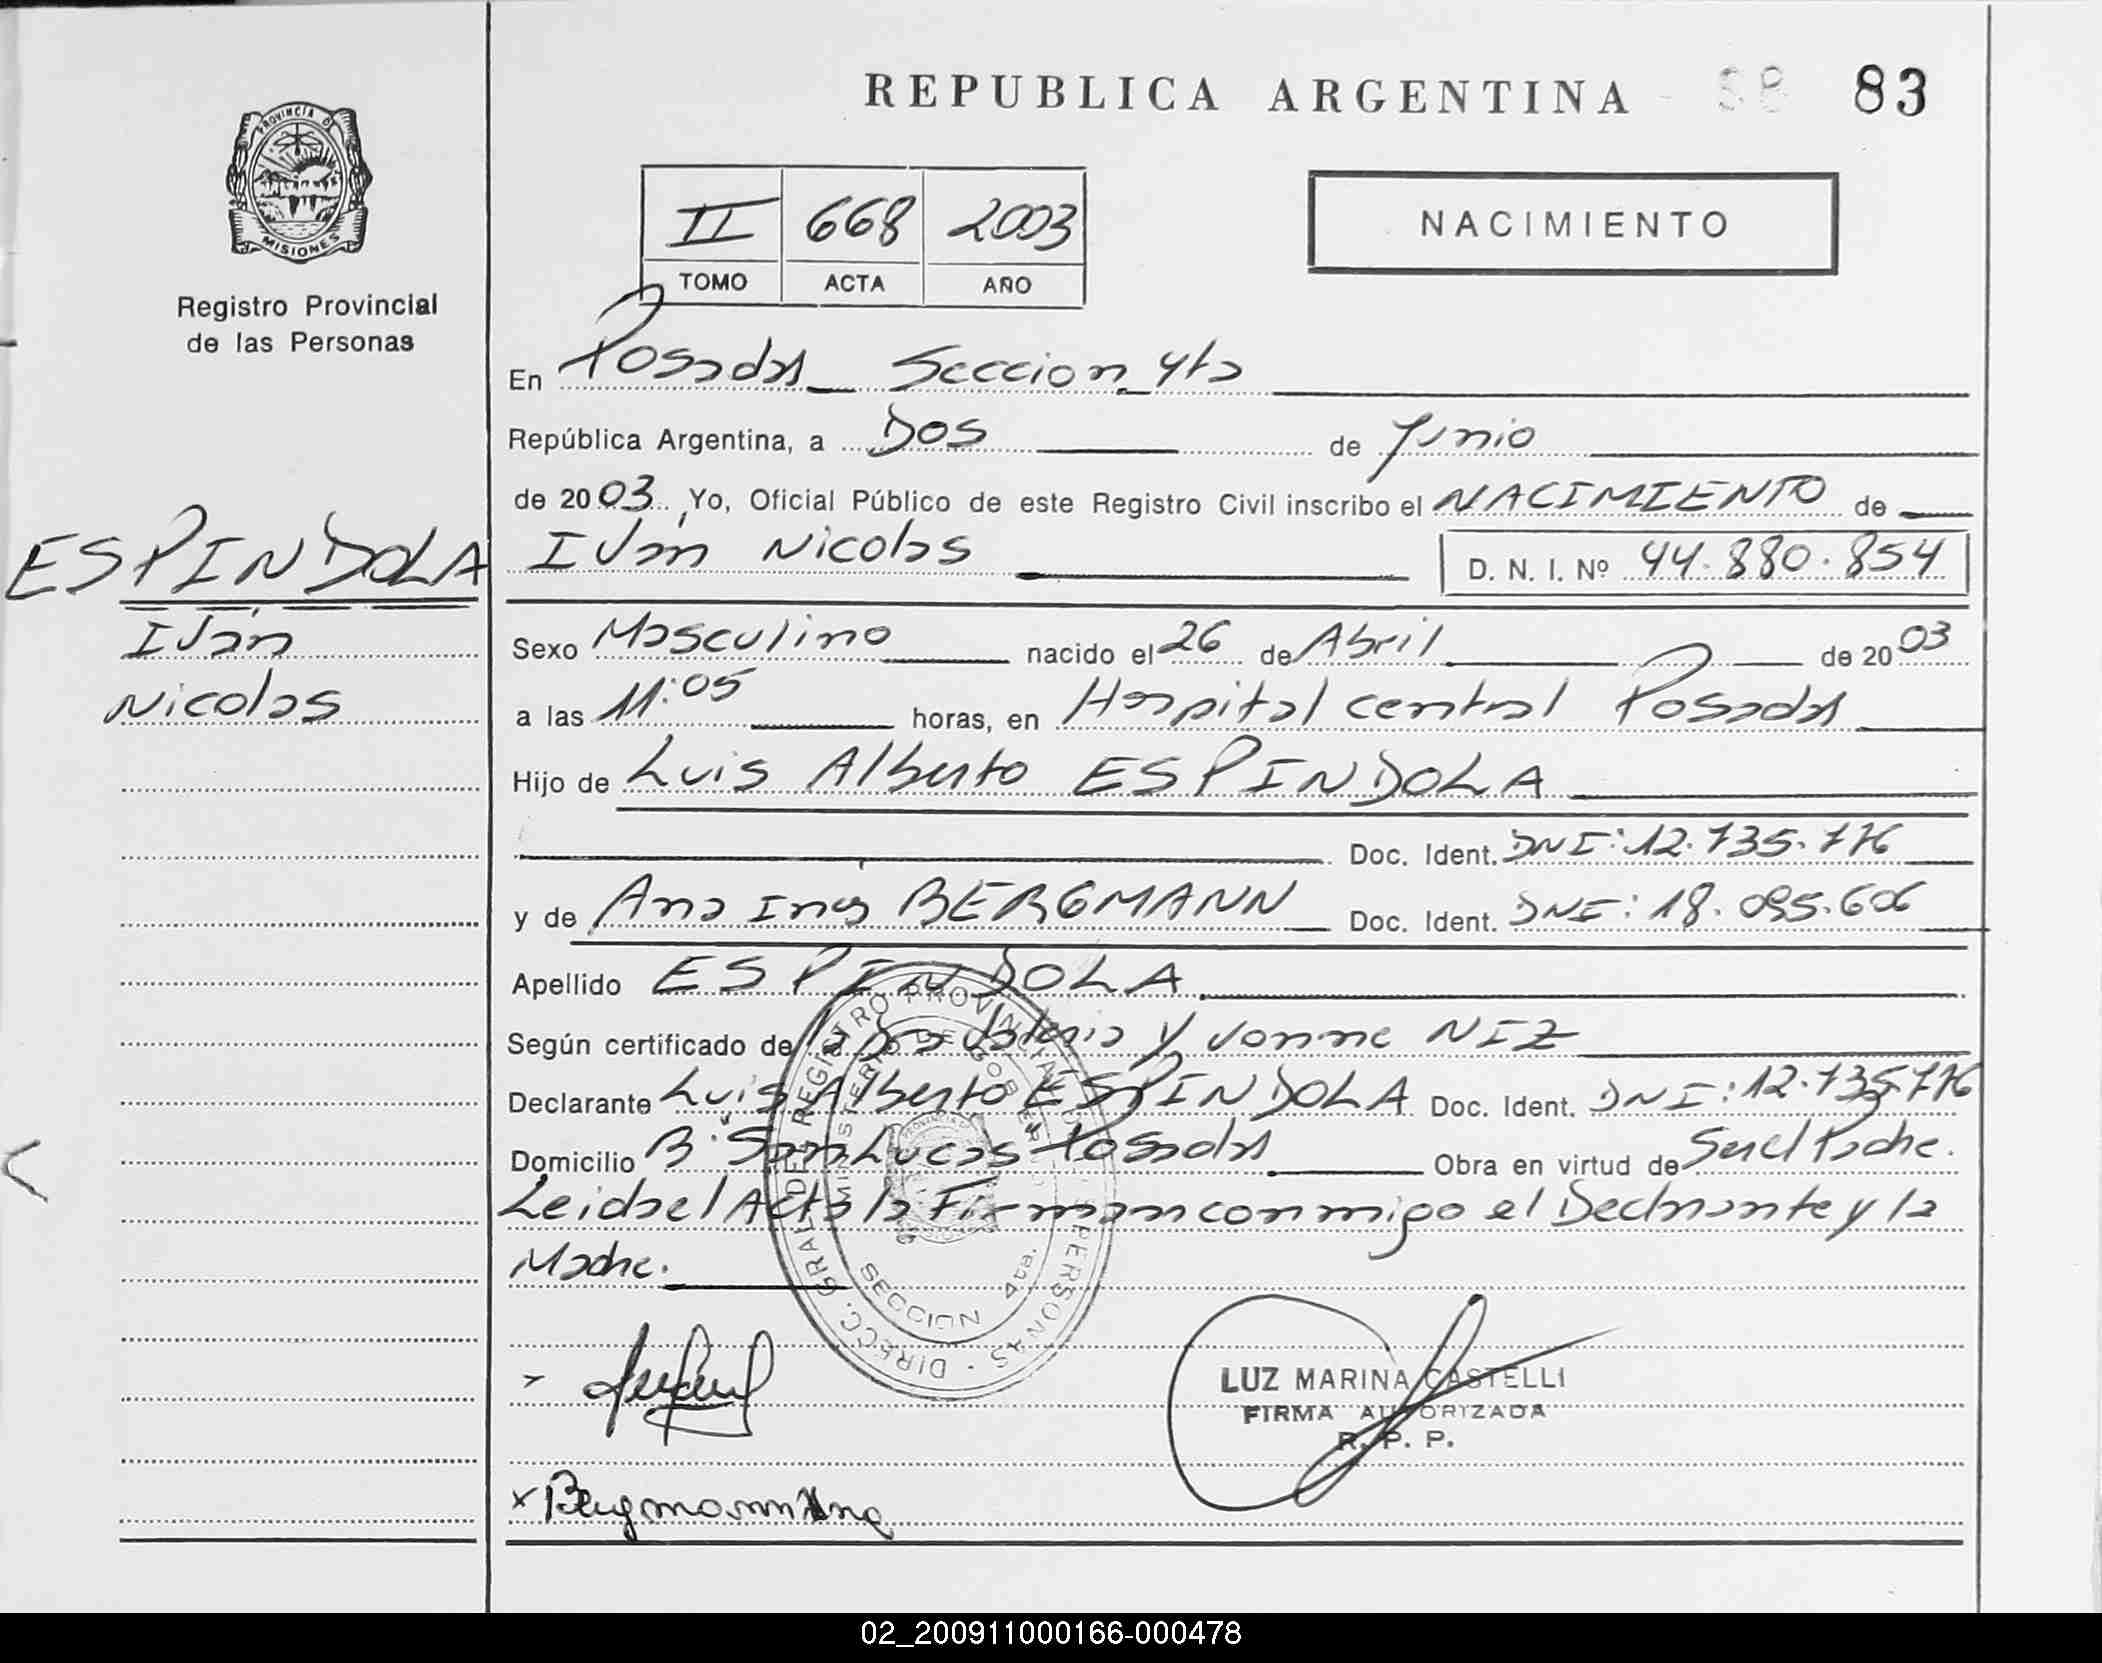 REPUBLICA ARGENTINA 58 83
PROVINCIA DE
MISIONES
Registro Provincial
de las Personas
II 668 2003
TOMO ACTA AÑO
NACIMIENTO
En Posadas Seccion 4ta
República Argentina, a Dos de Junio
de 2003, Yo, Oficial Público de este Registro Civil inscribo el NACIMIENTO de
ESPINDOLA Iván Nicolas D. N. I. Nº 44.880.854
Iván
Nicolas
Sexo Masculino nacido el 26 de Abril de 2003
a las 11:05 horas, en Hospital central Posadas
Hijo de Luis Alberto ESPINDOLA
Doc. Ident. DNI: 12.735.776
y de Ana Ines BERGMANN Doc. Ident. DNI: 18.095.606
Apellido ESPINDOLA
Según certificado de la Dra Valeria Yvonne NIZ
Declarante Luis Alberto ESPINDOLA Doc. Ident. DNI: 12.735.776
Domicilio Bº San Lucas Posadas Obra en virtud de Ser el Padre.
Leida el Acta la Firman conmigo el Declarante y la
Madre.
DIRECC. GRAL. DEL REGISTRO PROVINCIAL PERSONAS
SECCION 4ta.
LUZ MARINA CASTELLI
FIRMA AUTORIZADA
R. P. P.
x Bergmann Ana
02_200911000166-000478